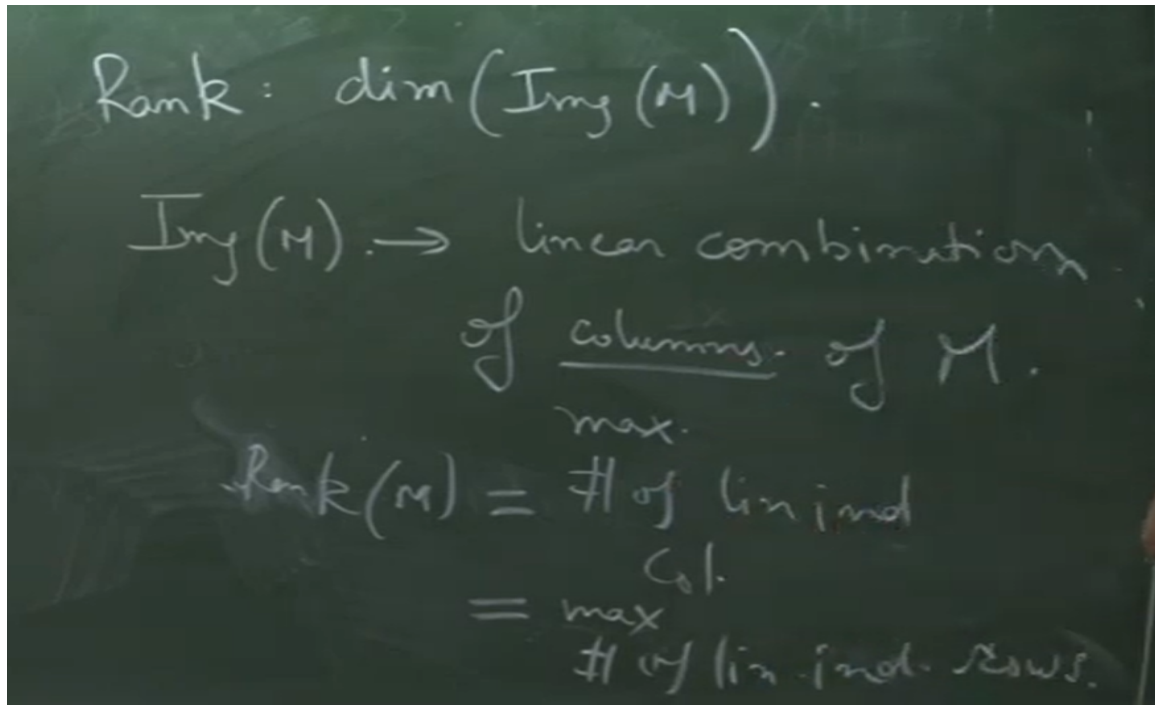 Rank: dim(Img(M)).
Img(M). → linear combination
of columns. of M.
max.
Rank(M) = # of lin ind
Col.
= max
# of lin. ind. rows.